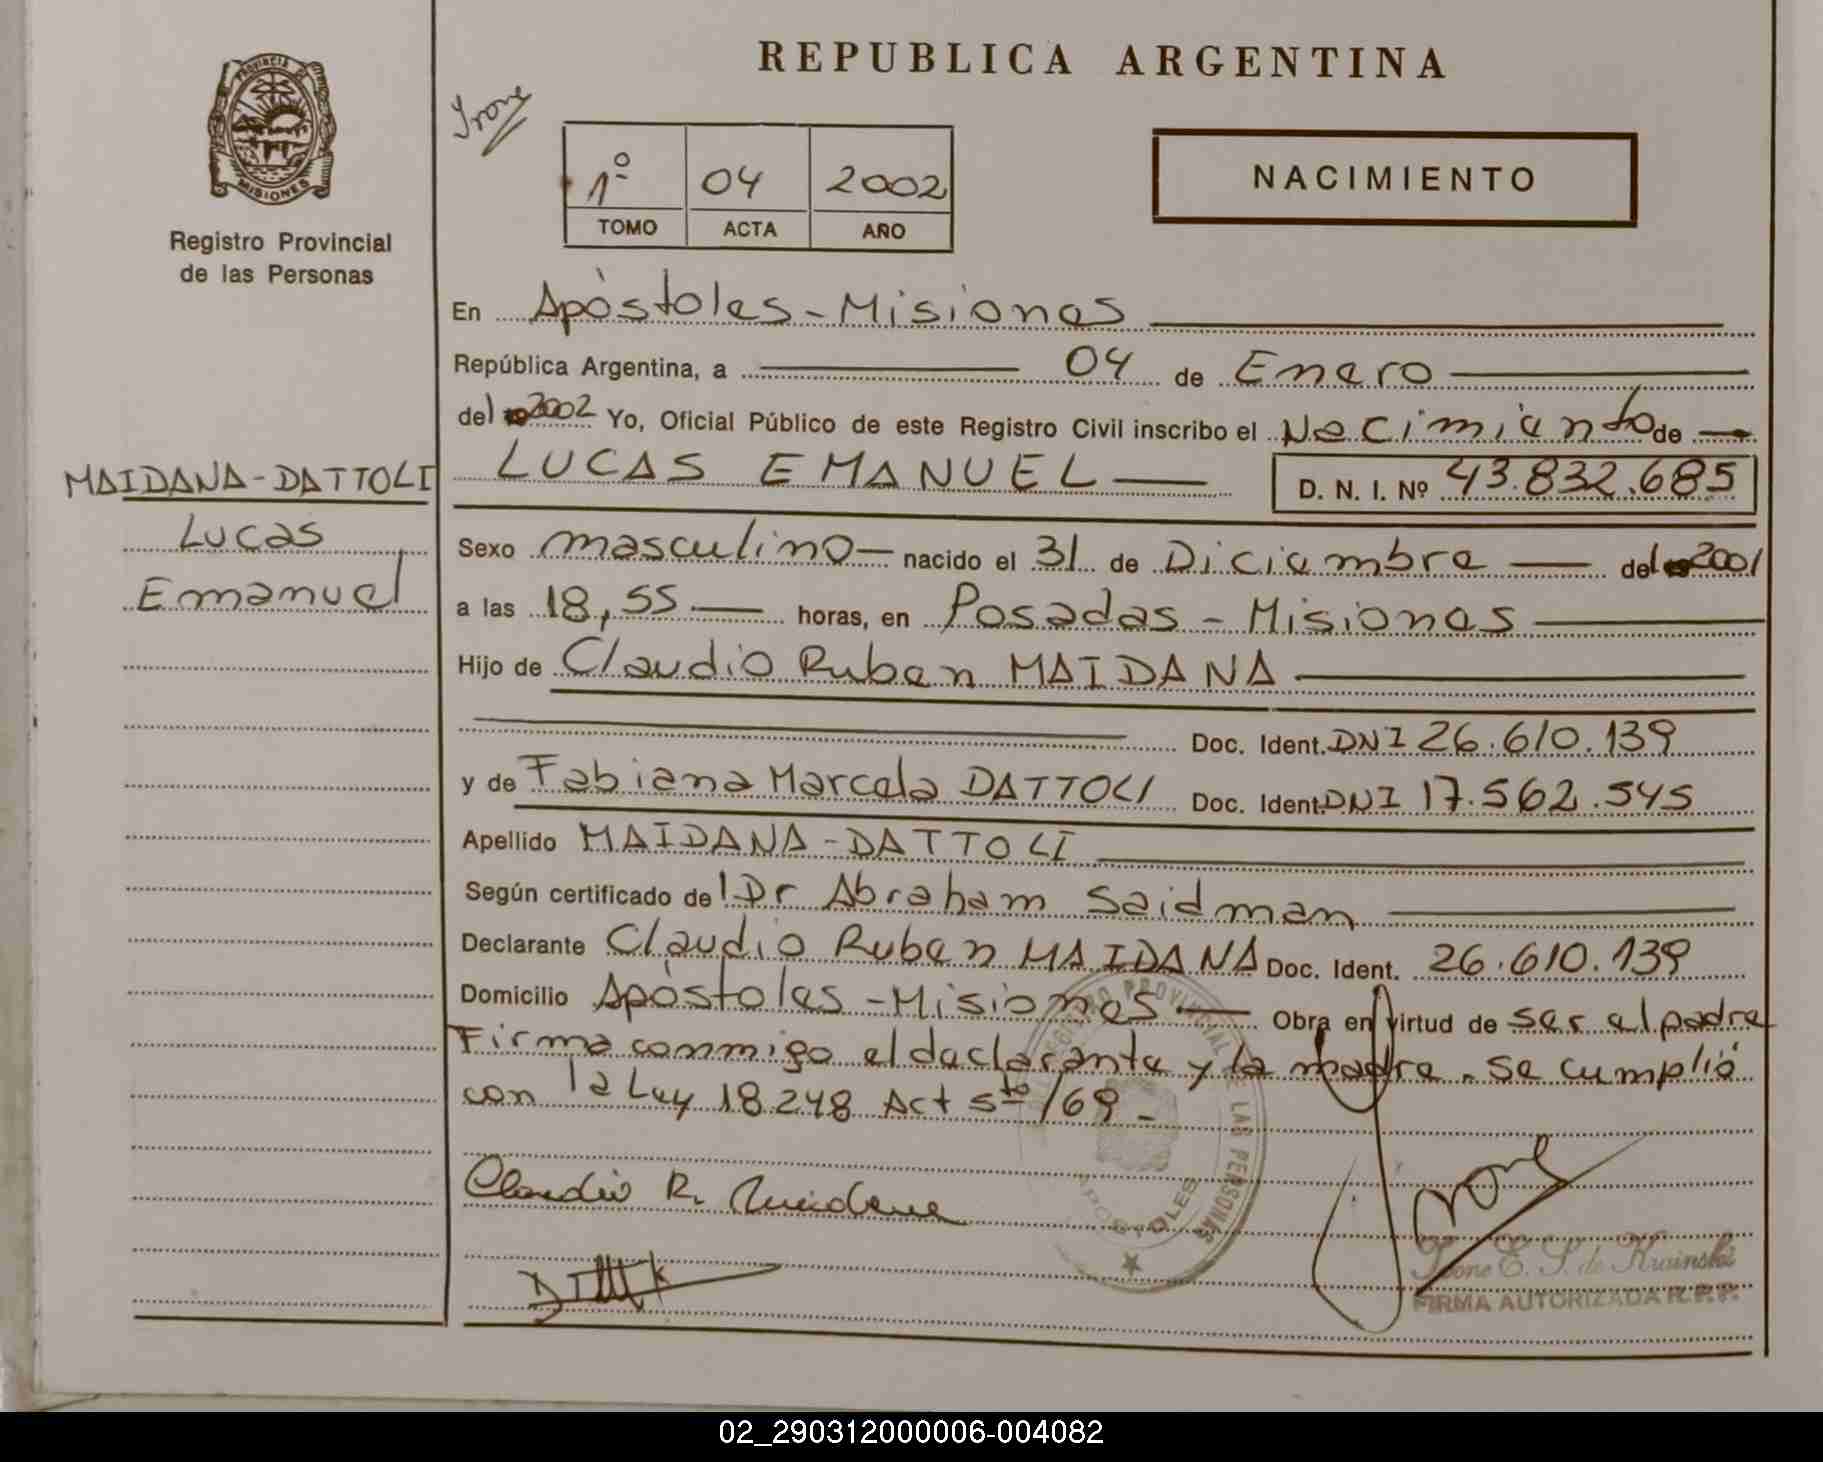 REPUBLICA ARGENTINA
PROVINCIA DE
MISIONES
Registro Provincial
de las Personas
Ivone
1º 04 2002
TOMO ACTA AÑO
NACIMIENTO
En Apóstoles - Misiones
República Argentina, a 04 de Enero
del 2002 Yo, Oficial Público de este Registro Civil inscribo el Nacimiento de
LUCAS EMANUEL D. N. I. Nº 43.832.685
MAIDANA-DATTOLI
Lucas
Emanuel
Sexo masculino nacido el 31 de Diciembre del 2001
a las 18,55 horas, en Posadas - Misiones
Hijo de Claudio Ruben MAIDANA
Doc. Ident. DNI 26.610.139
y de Fabiana Marcela DATTOLI Doc. Ident. DNI 17.562.545
Apellido MAIDANA-DATTOLI
Según certificado del Dr Abraham Saidman
Declarante Claudio Ruben MAIDANA Doc. Ident. 26.610.139
Domicilio Apóstoles - Misiones Obra en virtud de ser el padre
Firma conmigo el declarante y la madre. Se cumplió
con la Ley 18.248 Act 5to/69 -
REGISTRO PROVINCIAL DE LAS PERSONAS
APOSTOLES
Claudio R. Maidana
Ivone
Ivone E. S. de Kuinski
FIRMA AUTORIZADA R.P.P.
02_290312000006-004082